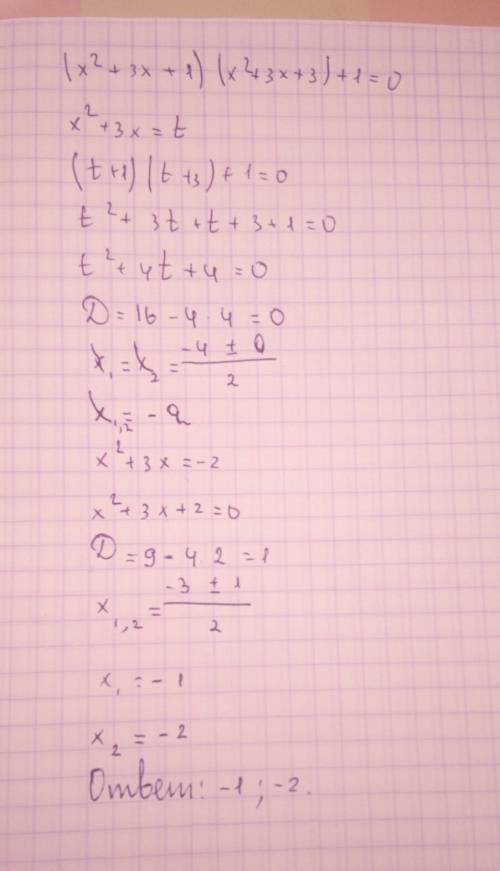 (x² + 3x + 1) (x² + 3x + 3) + 1 = 0
x² + 3x = t
(t + 1) (t + 3) + 1 = 0
t² + 3t + t + 3 + 1 = 0
t² + 4t + 4 = 0
D = 16 - 4 · 4 = 0
x₁ = x₂ = (-4 ± 0)/2
x₁,₂ = -2
x² + 3x = -2
x² + 3x + 2 = 0
D = 9 - 4 · 2 = 1
x₁,₂ = (-3 ± 1)/2
x₁ = -1
x₂ = -2
Ответ: -1 ; -2.